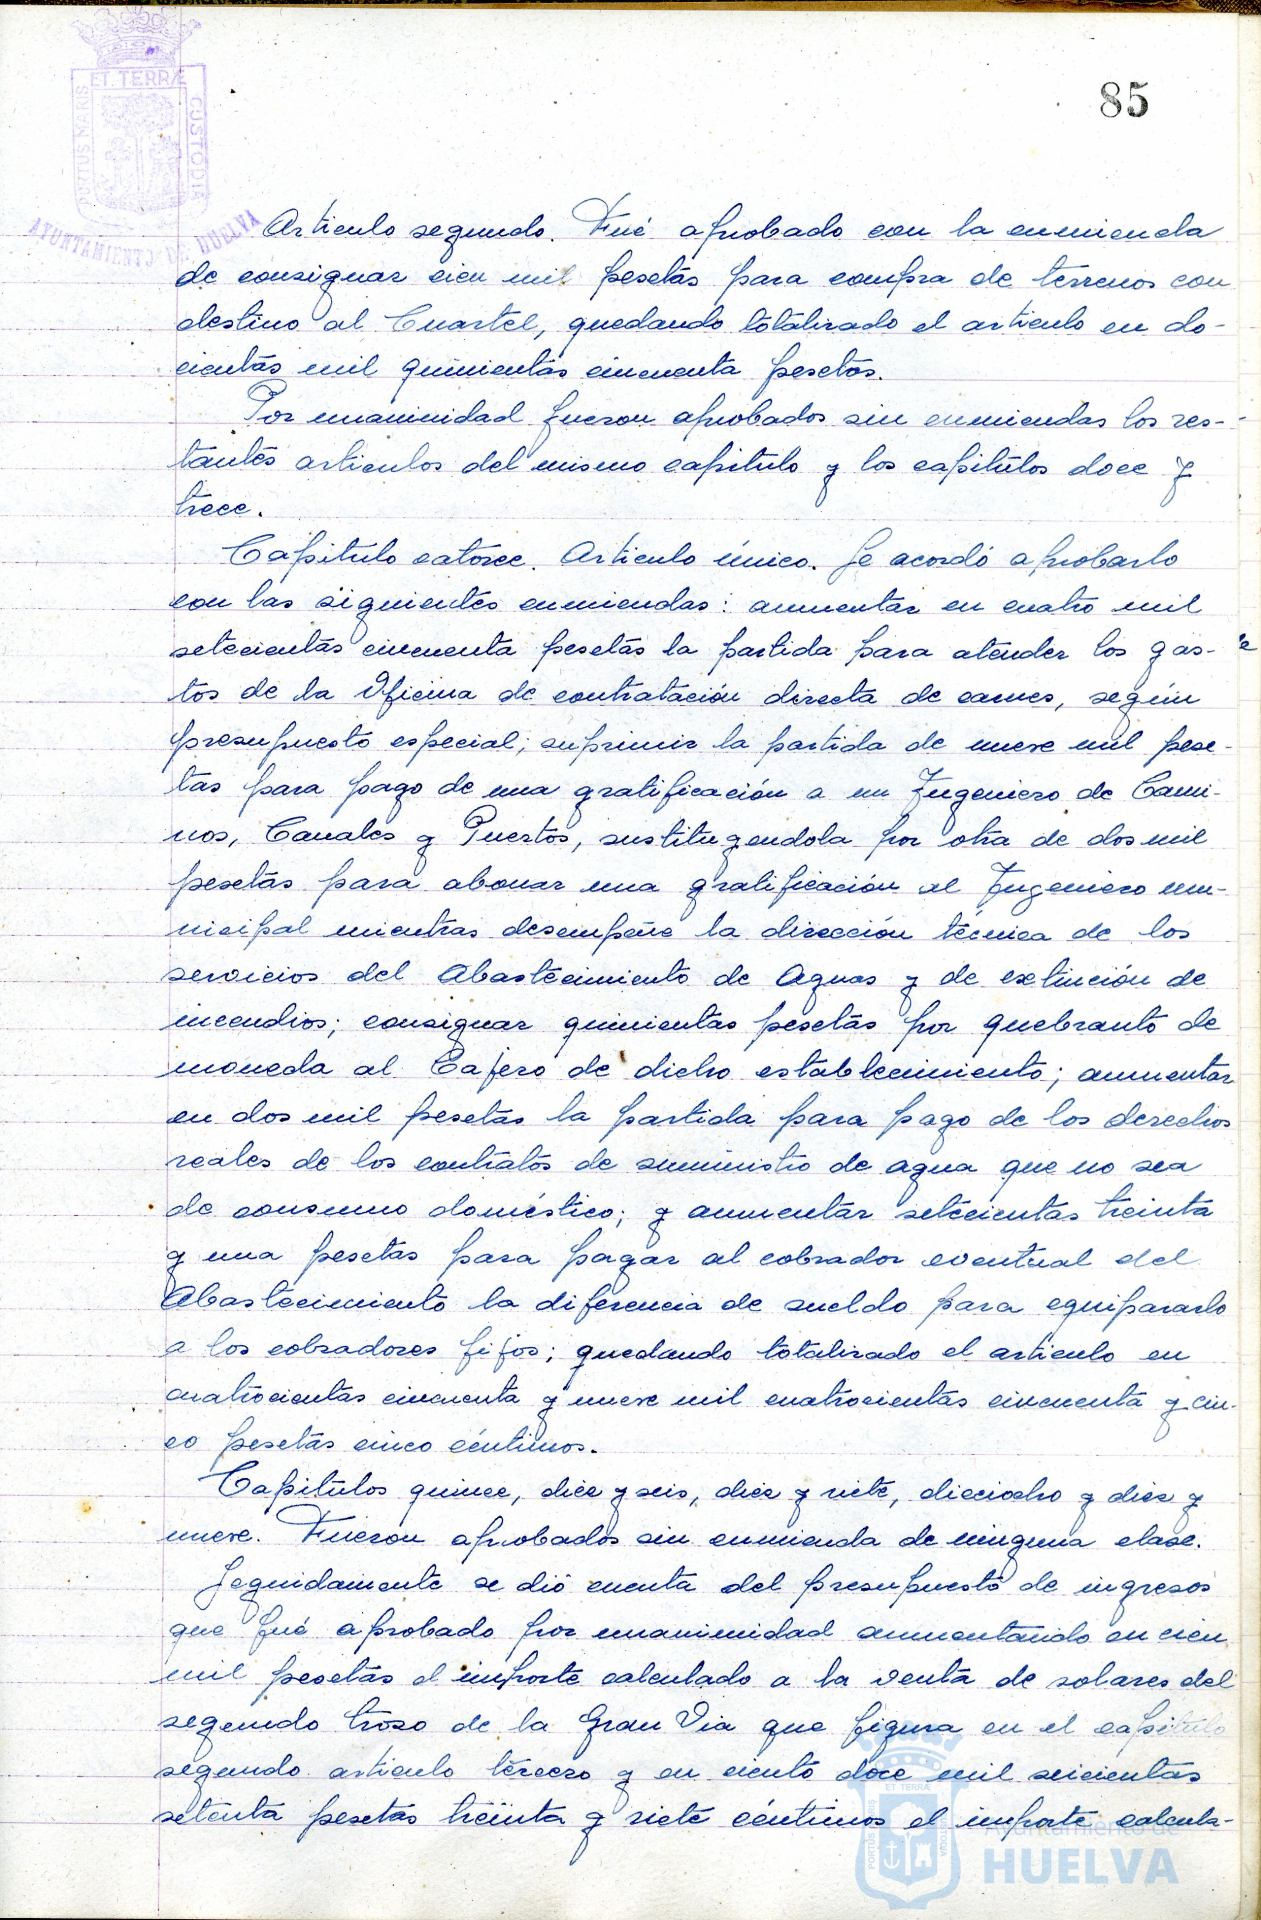 ET TERRÆ
PORTUS MARIS
CUSTODIA
AYUNTAMIENTO DE HUELVA
85
Articulo segundo. Fué aprobado con la enmienda
de consignar cien mil pesetas para compra de terrenos con
destino al Cuartel, quedando totalizado el articulo en do-
cientas mil quinientas cincuenta pesetas.
Por unanimidad fueron aprobados sin enmiendas los res-
tantes articulos del mismo capitulo y los capitulos doce y
trece.
Capitulo catorce. Articulo único. Se acordó aprobarlo
con las siguientes enmiendas: aumentar en cuatro mil
setecientas cincuenta pesetas la partida para atender los gas-
tos de la Oficina de contratación directa de carnes, según
presupuesto especial; suprimir la partida de nueve mil pese-
tas para pago de una gratificación a un Ingeniero de Cami-
nos, Canales y Puertos, sustituyendola por otra de dos mil
pesetas para abonar una gratificación al Ingeniero mu-
nicipal mientras desempeñe la dirección técnica de los
servicios del Abastecimiento de Aguas y de extinción de
incendios; consignar quinientas pesetas por quebranto de
moneda al Cajero de dicho establecimiento; aumentar
en dos mil pesetas la partida para pago de los derechos
reales de los contratos de suministro de agua que no sea
de consumo doméstico; y aumentar setecientas treinta
y una pesetas para pagar al cobrador eventual del
Abastecimiento la diferencia de sueldo para equipararlo
a los cobradores fijos; quedando totalizado el articulo en
cuatrocientas cincuenta y nueve mil cuatrocientas cincuenta y cin-
co pesetas cinco céntimos.
Capitulos quince, diez y seis, diez y siete, dieciocho y diez y
nueve. Fueron aprobados sin enmienda de ninguna clase.
Seguidamente se dió cuenta del presupuesto de ingresos
que fué aprobado por unanimidad aumentando en cien
mil pesetas el importe calculado a la venta de solares del
segundo trozo de la Gran Via que figura en el capitulo
segundo articulo tercero y en ciento doce mil seicientas
setenta pesetas treinta y siete céntimos el importe calcula-
ET TERRÆ
PORTUS MARIS
CUSTODIA
Ayuntamiento de
HUELVA